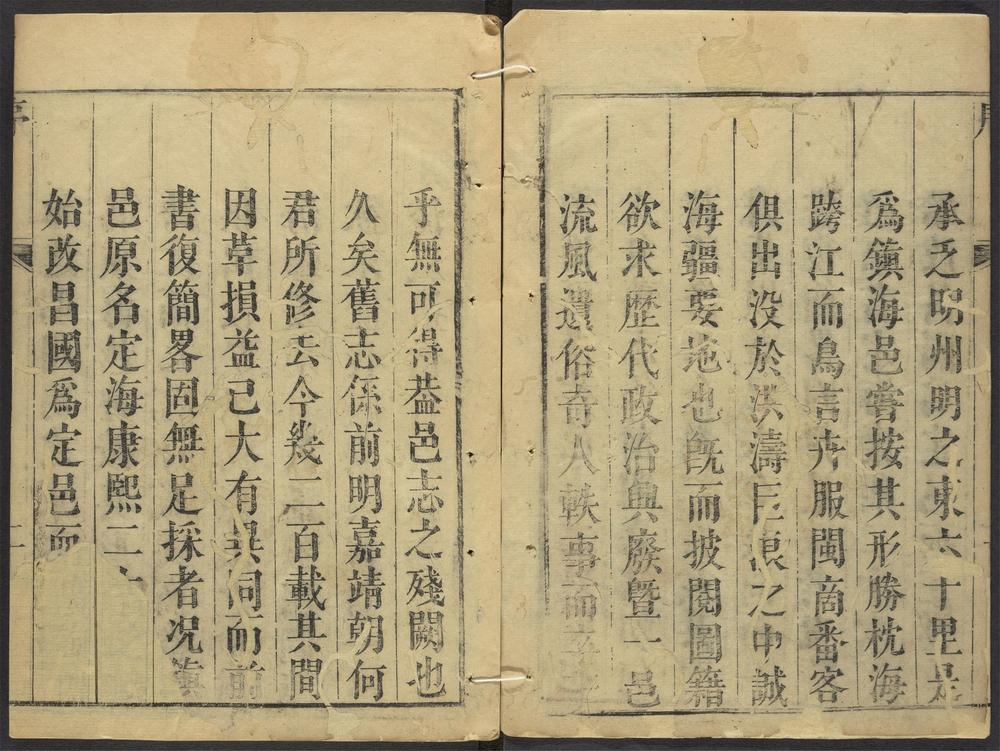 承乏明州明之東六十里是
爲鎮海邑嘗按其形勝枕海
跨江而鳥言卉服閩商番客
俱出没於洪濤巨浪之中誠
海疆要地也既而披閱圖籍
欲求歷代政治興廢暨一邑
流風遺俗奇人軼事而
乎無可得葢邑志之殘闕也
久矣舊志係前明嘉靖朝何
君所修去今幾二百載其間
因草損益已大有異同而前
書復簡畧固無足採者况鎮
邑原名定海康熙二十
始改昌國爲定邑而
序
二